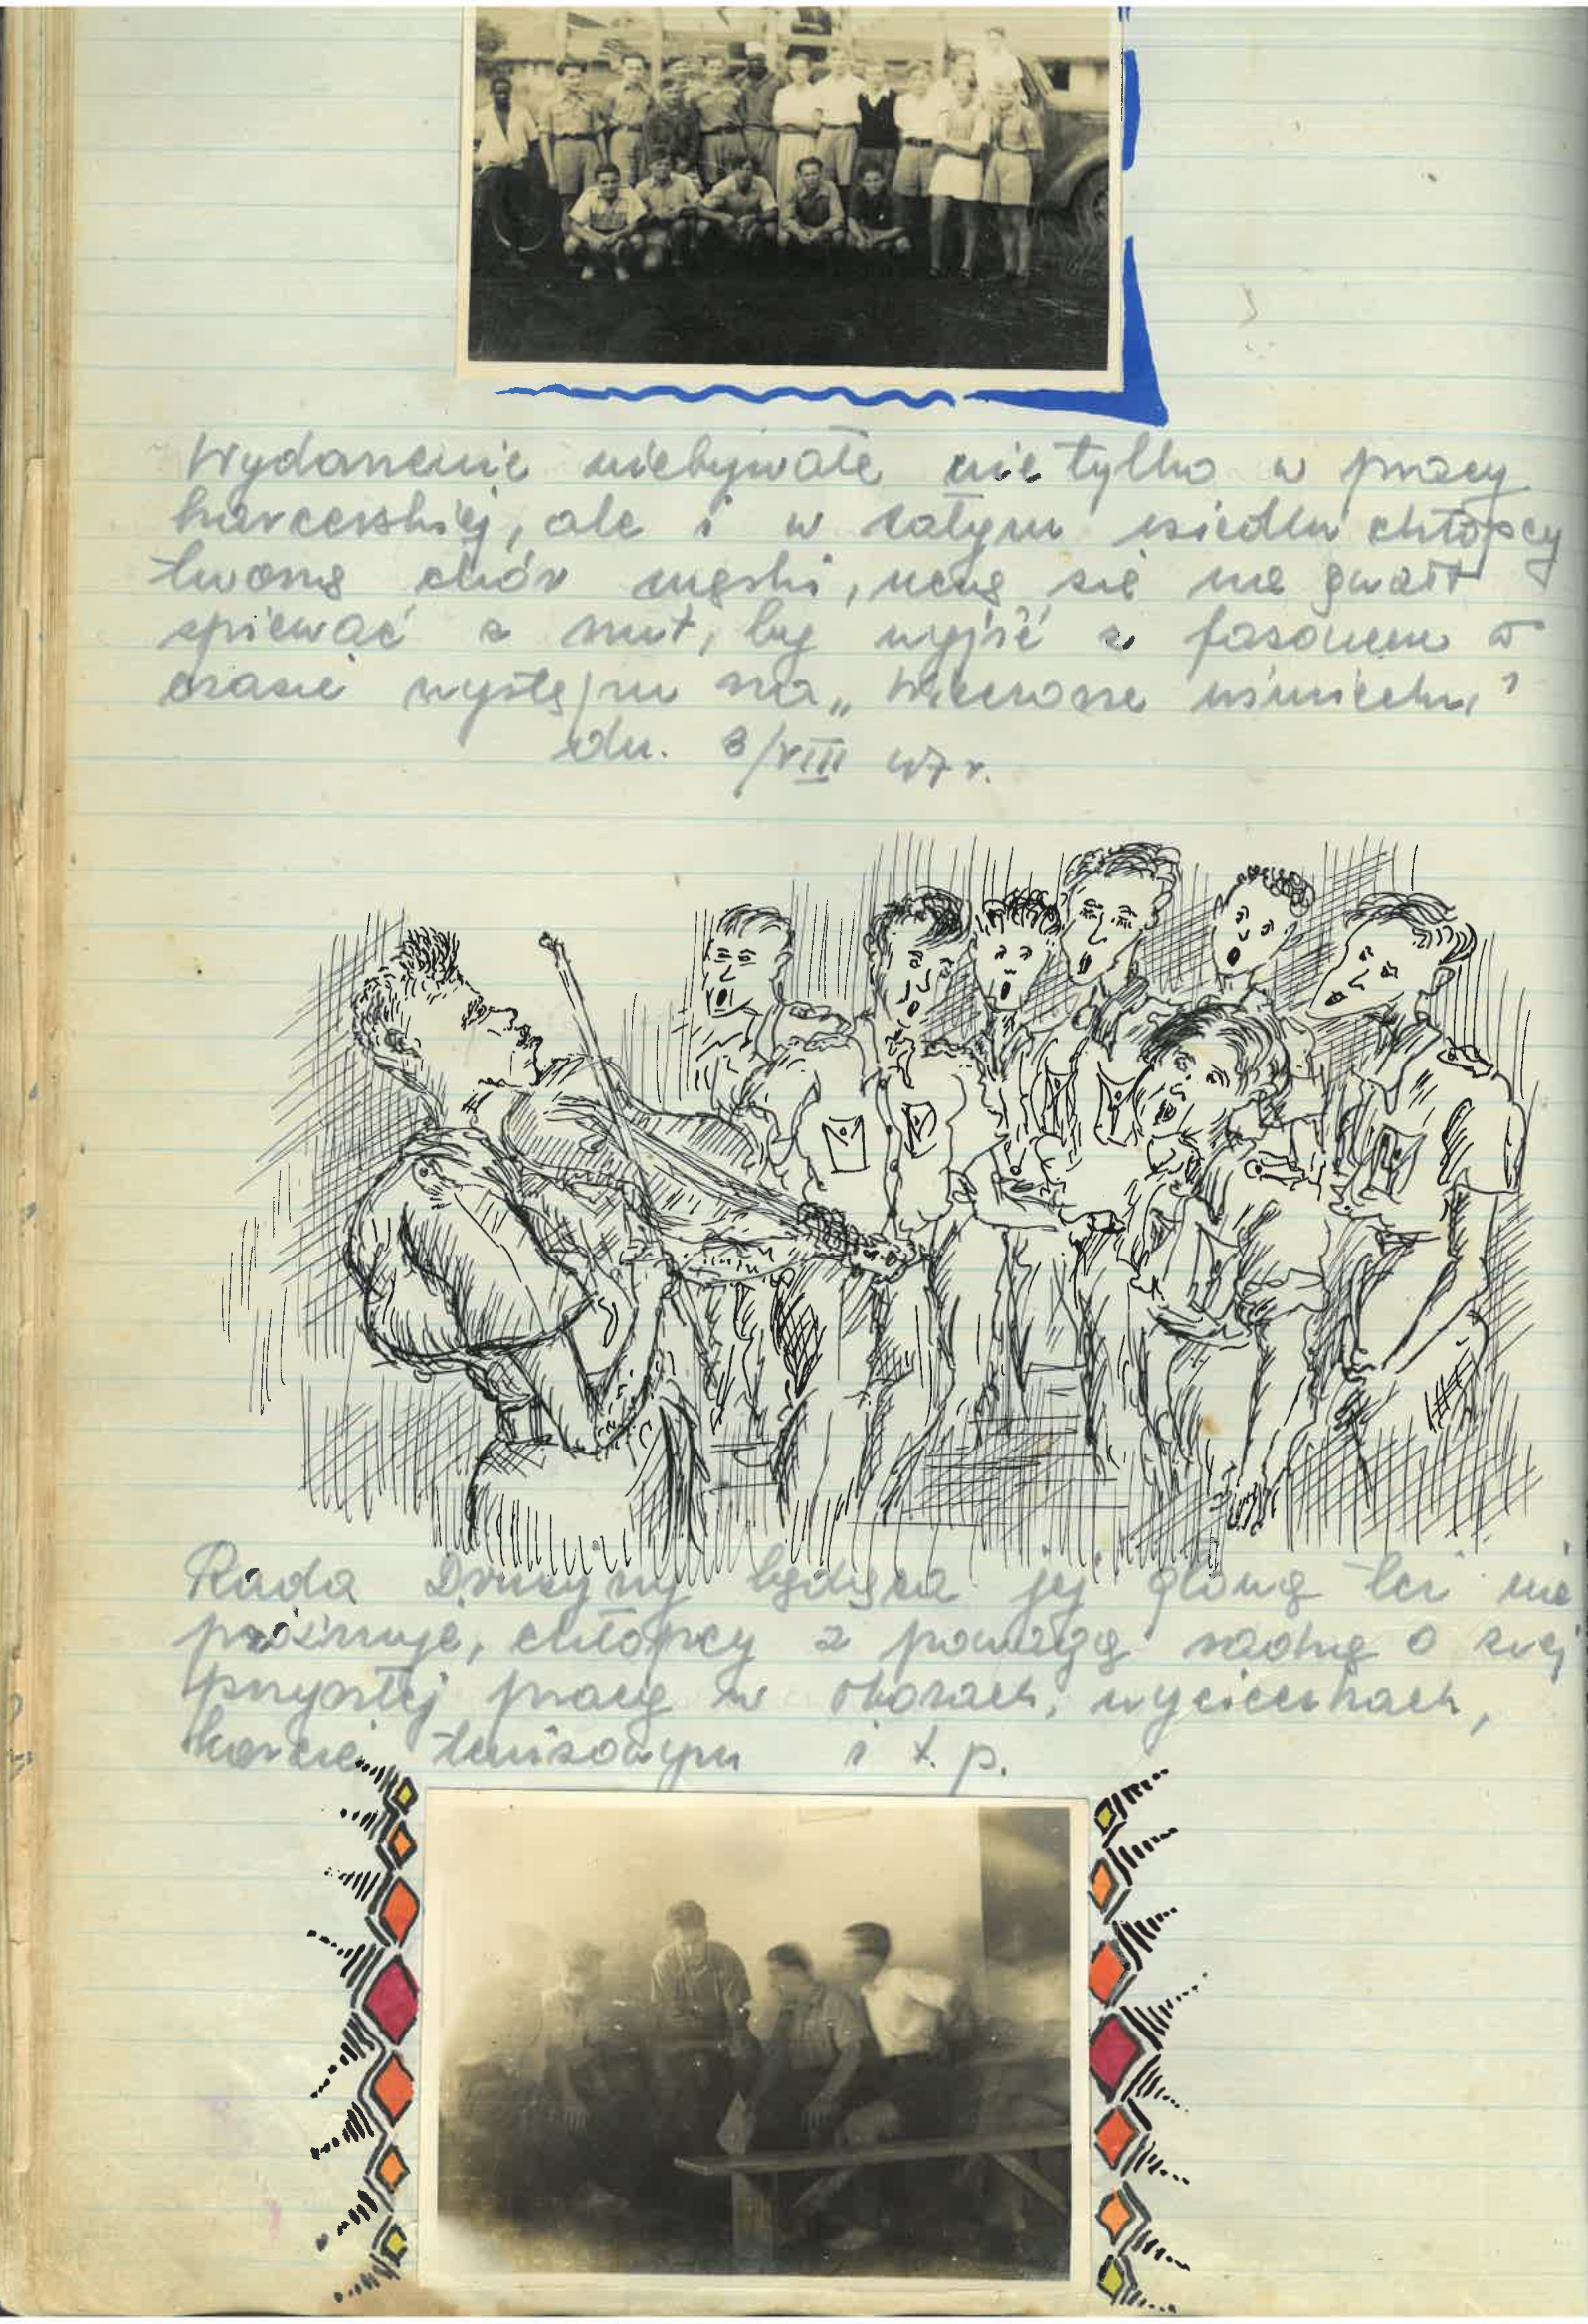 Wydarzenie niebywałe nie tylko w pracy
harcerskiej, ale i w całym osiedlu chłopcy
tworzą chór męski, uczą się na gwałt
śpiewać z nut, by wyjść z fasonem w
czasie występu na „Wieczorze uśmiechu”
dn. 3/VIII 47 r.
Rada Drużyny będąca jej głową też nie
próżnuje, chłopcy z powagą radzą o swej
przyszłej pracy w obozach, wycieczkach,
korcie tenisowym i t. p.